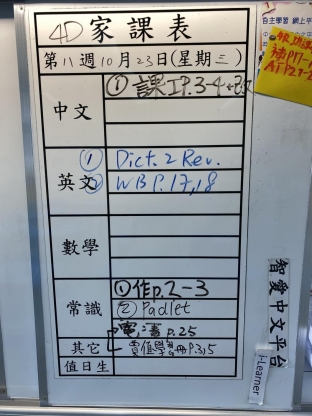 4D 家課表
第八週10月23日(星期三)
中文
① 課工P.3-4+改
英文
① Dict. 2 Rev.
② WB P.17,18
數學
常識
① 作p.2-3
② Padlet
電 書 p.25
其它
賞值學習冊P.3,5
值日生
自主學習 網上平
智愛中文平台
i-Learner